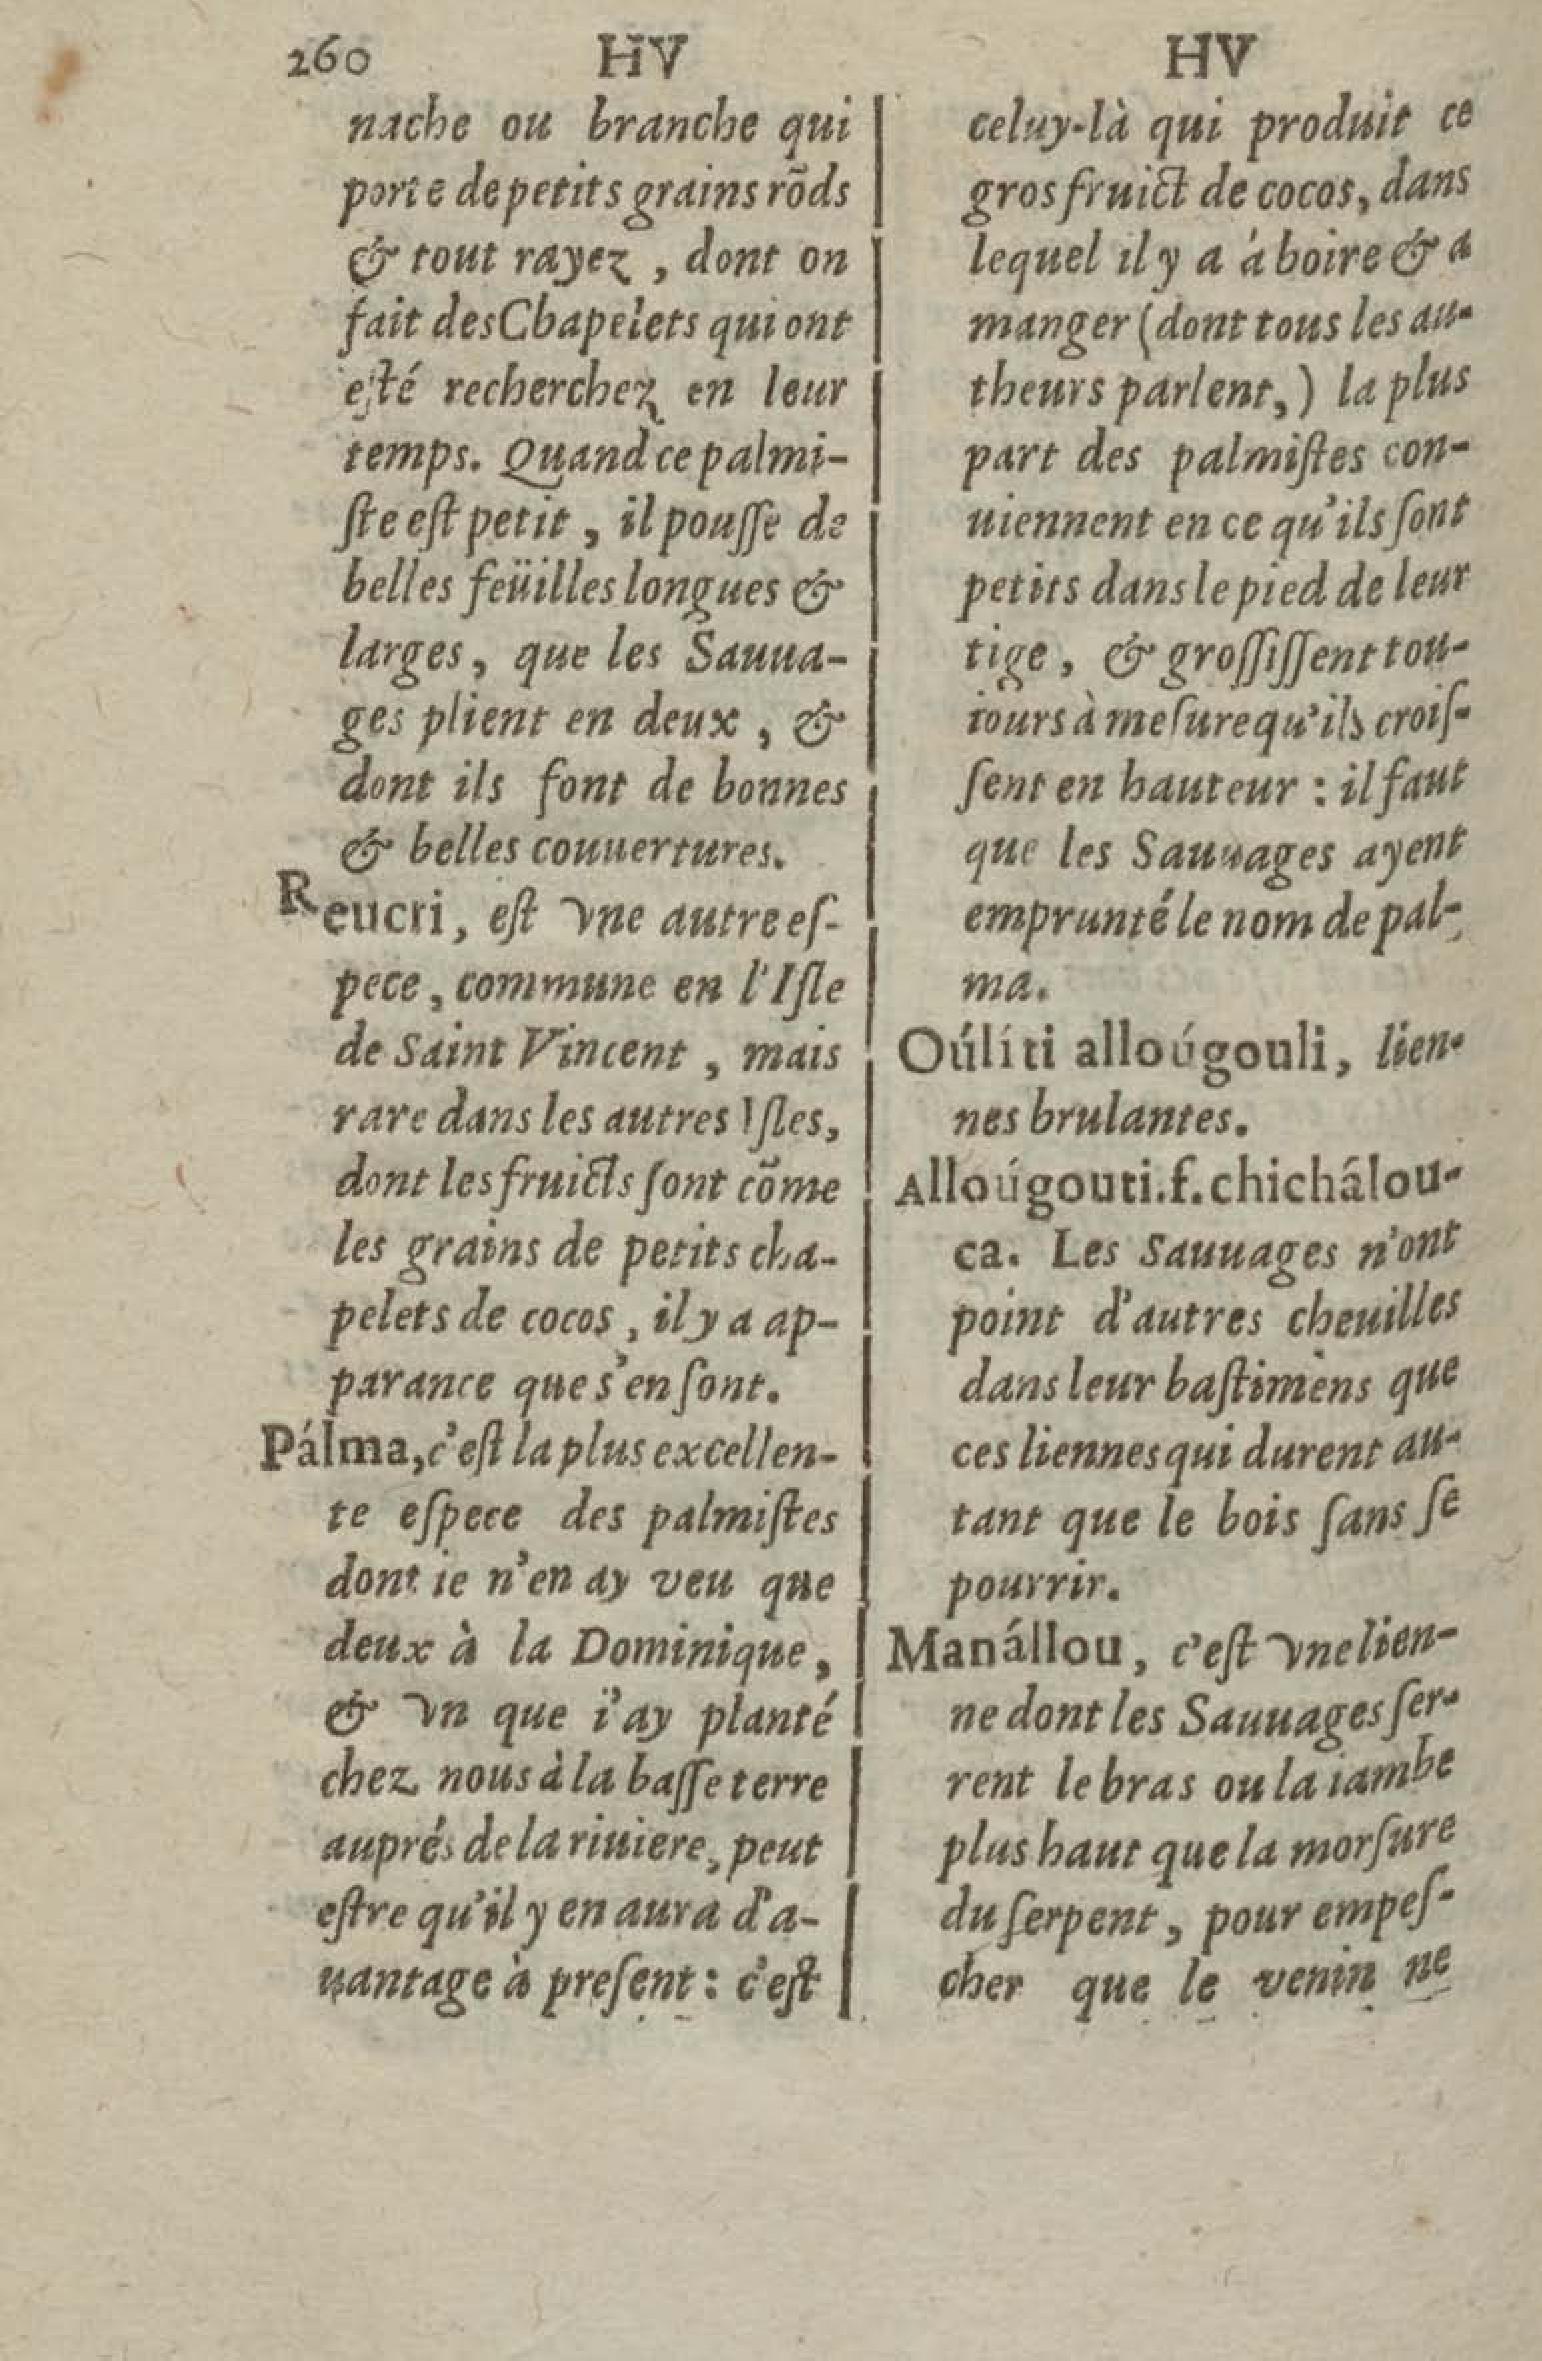 260 HV HV
nache ou branche qui
porte de petits grains rõds
& tout rayez , dont on
fait des Chapelets qui ont
esté recherchez en leur
temps. Quand ce palmi-
ſte eſt petit , il pouſſe de
belles feüilles longues &
larges, que les Sauua-
ges plient en deux , &
dont ils font de bonnes
& belles couuertures.
Reucri, eſt vne autre eſ-
pece, commune en l'Iſle
de Saint Vincent , mais
rare dans les autres Iſles,
dont les fruicts ſont cõme
les grains de petits cha-
pelets de cocos , il y a ap-
parance que s'en ſont.
Pálma, c'eſt la plus excellen-
te eſpece des palmiſtes
dont ie n'en ay veu que
deux à la Dominique,
& vn que i'ay planté
chez nous à la baſſe terre
auprés de la riuiere, peut
eſtre qu'il y en aura d'a-
uantage à preſent : c'eſt
celuy-là qui produit ce
gros fruict de cocos, dans
lequel il y a à boire & a
manger (dont tous les au-
theurs parlent,) la plus
part des palmiſtes con-
uiennent en ce qu'ils ſont
petits dans le pied de leur
tige , & groſſiſſent tou-
iours à meſure qu'ils croiſ-
ſent en hauteur : il faut
que les Sauuages ayent
emprunté le nom de pal-
ma.
Oúlíti alloúgouli, lien-
nes brulantes.
Alloúgouti.f.chichálou-
ca. Les Sauuages n'ont
point d'autres cheuilles
dans leur baſtimens que
ces liennes qui durent au-
tant que le bois ſans ſe
pourrir.
Manállou, c'eſt vne lien-
ne dont les Sauuages ſer-
rent le bras ou la iambe
plus haut que la morſure
du ſerpent , pour empeſ-
cher que le venin ne